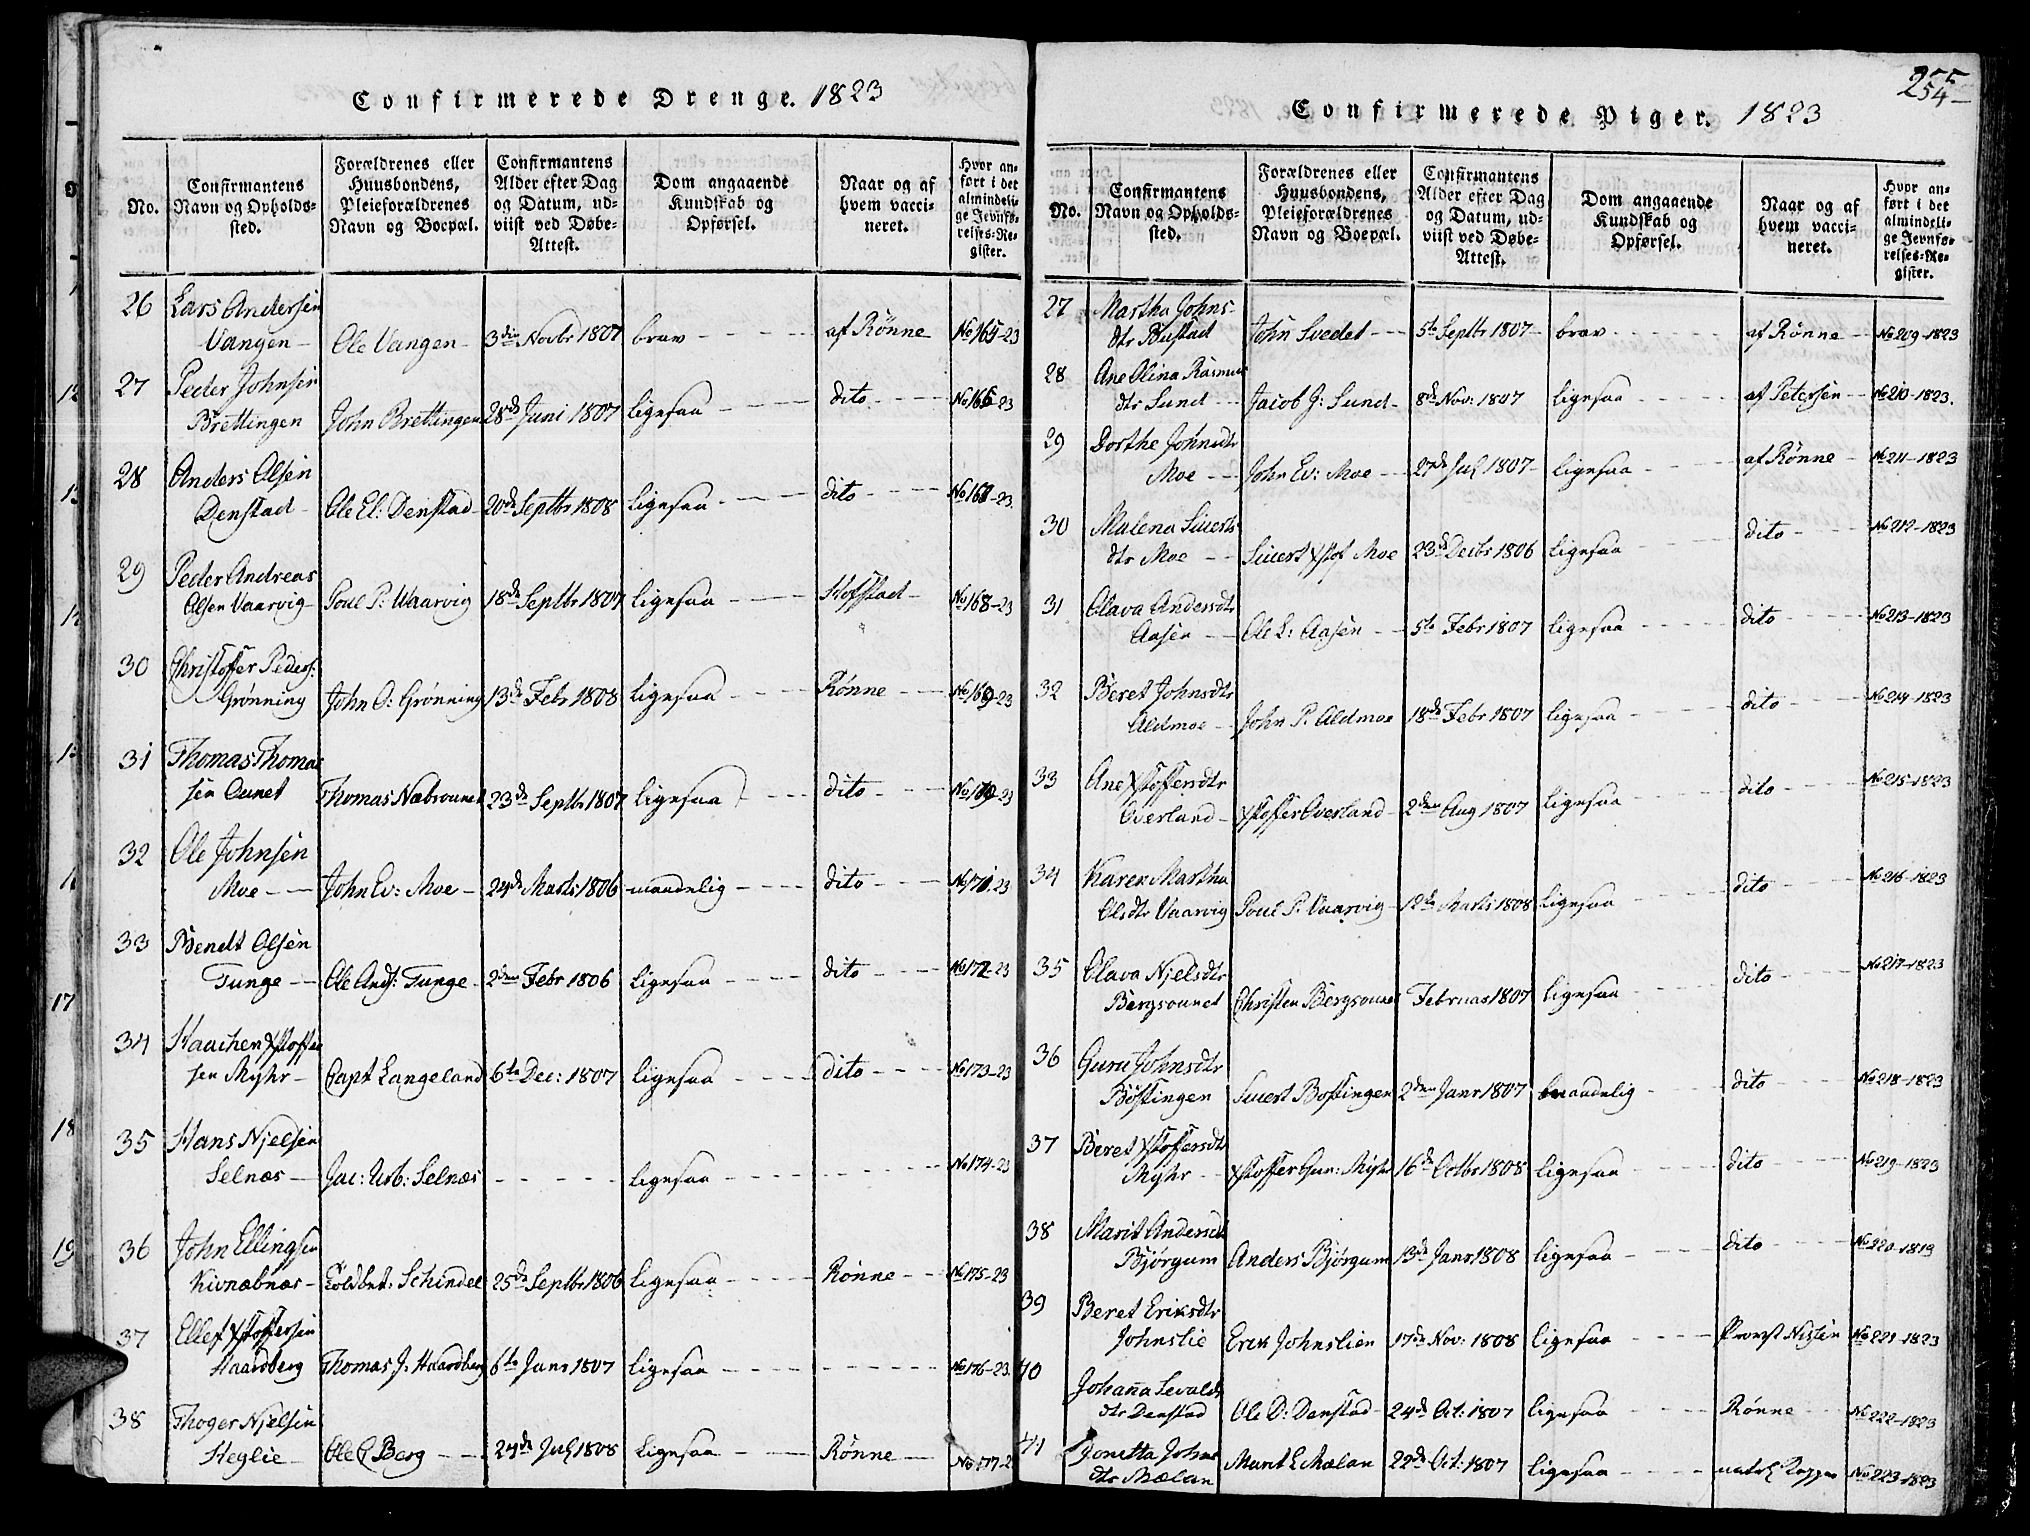 Confirmerede Drenge. 1823
No.
Confirmantens Navn og Opholds-sted.
Forældrenes eller Huusbondens, Pleieforældrenes Navn og Boepæl.
Confirmantens Alder efter Dag og Datum, ud-viist ved Døbe-Attest.
Dom angaaende Kundskab og Opførsel.
Naar og af hvem vacci-neret.
Hvor an-ført i det almindeli-ge Jevnfø-relses-Re-gister.
26 Lars Andersen
Vangen - Ole Vangen - 3die Novbr 1807 brav - - - af Rönne No 165-23
27 Peder Johnsen
Brettingen John Brettingen 28de Juni 1807 ligesaa - - - dito - - - No 166-23
28 Anders Olsen
Denstad - Ole El: Denstad - 20de Septbr 1808 ligesaa - - - dito - - - No 168-23.
29 Peder Andreas
Olsen Vaarvig - Poul P: Waarvig 18de Septbr 1807 ligesaa - - - Hofstad - No 168-23
30 Christoffer Peders:
Grønning John O: Grønning 13de Febr 1808 ligesaa - - - Rönne - - No 169-23
31 Thomas Thomae
sen Ounet Thomas Næbsounet 23de Septbr 1807 ligesaa - - dito - - - No 170-23
32 Ole Johnsen
Moe - - John Ev: Moe - 24de Marts 1806 maadelig - - - dito - - - No 171-23
33 Bendt Olsen
Tunge - Ole And: Tunge - 2den Febr 1806 ligesaa - - - dito - - - No 172-23
34 Haachen Xstoffer
sen Myhr - Capt Langeland 6te Dec: 1807 ligesaa - - - dito - - - No 173-23
35 Hans Njelsen
Selnæs - Jac: Urb: Selnæs - - - - - ligesaa - - - - - - No 174-23
36 John Ellingsen
Kivnæbnæs - Soldbet: Schindel 25de Septbr 1806 ligesaa - - - Rönne - - No 175-23
37 Ellef Xstoffersen
Haardberg Thomas J: Haardberg 6te Janr 1807 ligesaa - - - - - - No 176-23.
38 Thoger Njelsen
Heglie - Ole C Berg - - 24de July 1808 ligesaa - - - Rönne - - No 177-2
255
254
Confirmerede Piger. 1823
No.
Confirmantens Navn og Opholds-sted.
Forældrenes eller Huusbondens, Pleieforældrenes Navn og Boepæl.
Confirmantens Alder efter Dag og Datum, ud-viist ved Døbe-Attest.
Dom angaaende Kundskab og Opførsel.
Naar og af hvem vacci-neret.
Hvor an-ført i det almindeli-ge Jevnfø-relses-Re-gister.
27 Martha Johns-
dtr Bustad John Svedet - - 5te Septbr 1807 - brav - - - af Rønne - No 209-1823
28 Ane Olina Rasmus
dtr Sund - Jacob J: Sund - 8de Nov: 1807 ligesaa - - - af Petersen - No 210-1823.
29 Dorthe Johnsdtr
Moe - - John Ev: Moe - 27de July 1807 - ligesaa - - - af Rønne - No 211-1823
30 Malena Siverts
dtr Moe - - Siuert Xstof Moe 23de Decbr 1806 ligesaa - - - dito - - - No 212-1823
31 Olava Andersdtr
Aasen - - Ole L: Aasen - - 5te Febr 1807 ligesaa - - - dito - - - No 213-1823
32 Beret Johnsdtr
Aldmoe - John P. Aldmoe 18de Febr 1807 ligesaa - - - dito - - - No 214-1823
33 Ane Xstoffersdtr
Overland - Xstoffer Overland - 2den Aug 1807 ligesaa - - - dito - - - No 215-1823
34 Karen Martha
Olsdtr Vaarvig Poul P. Vaarvig - 12te Marts 1808 ligesaa - - - dito - - - No 216-1823
35 Olava Njelsdtr
Bergsounet Christen Bergsounet Februar 1807 ligesaa - - - dito - - - No 217-1823
36 Guru Johnsdtr
Böstingen Siuert Bostingen 2den Janr 1807 maadelig - dito - - - No 218-1823
37 Beret Xstoffersdtr
Myhr - - Xstoffer Gun: Myhr 16de Octbr 1808 ligesaa - - - dito - - - No 219-1823
38 Marit Andersdt
Bjørgum Anders Bjørgum 13de Janr 1808 ligesaa - - - dito - - - No 220-1813
39 Beret Eriksdtr
Johnslie Erik Johnslien 17de Nov: 1808 ligesaa - - - Provst Nissen No 221-1823
40 Johaña Sevalds
dtr Denstad Ole D: Denstad - 24de Oct: 1807 ligesaa - - - Rønne - - No 222-1823
41 Jonetta Johns
dtr Mælan Marit E Mælan 22de Oct: 1807 ligesaa - - - naturl Kopper No 223-1823